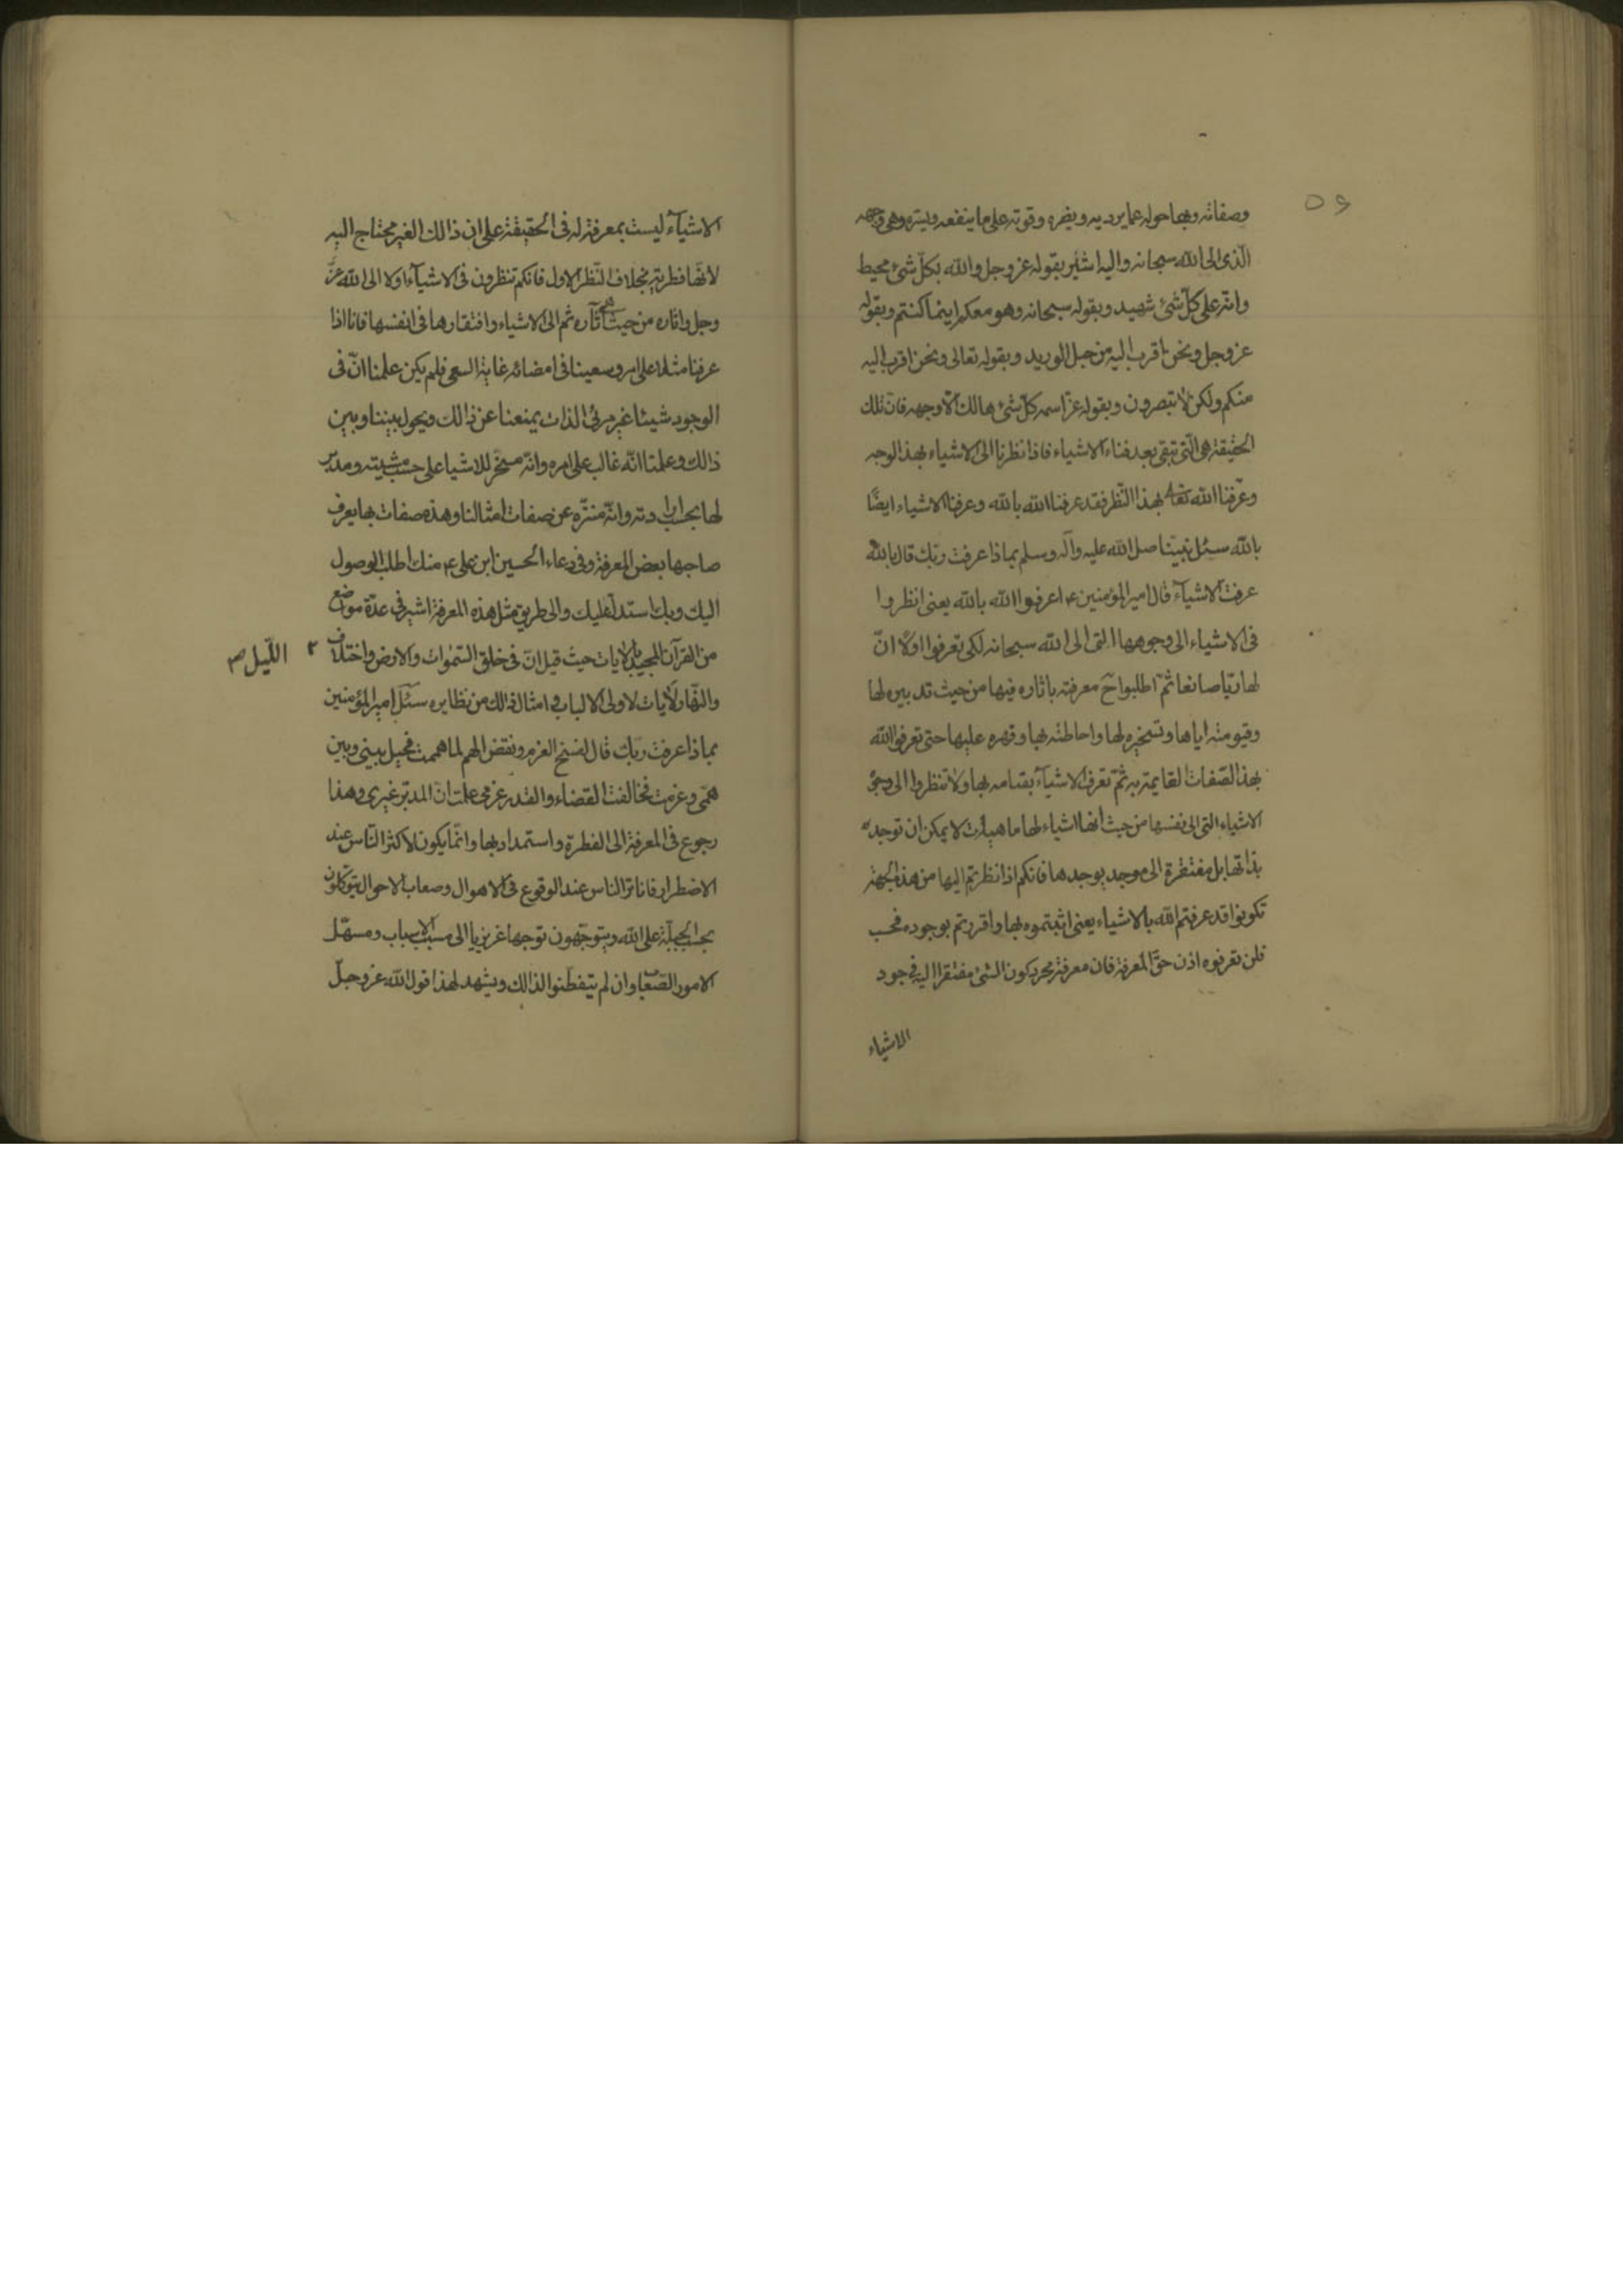 ٥٩
وصفاته وبها حوله عما يرديه ويضره وقوته على ما ينفعه ويسره وهى وجهه
الّذى الى الله سبحانه واليه اشير بقوله عز وجل والله بكلّ شئ محيط
وانّه على كلّ شئ شهيد وبقوله سبحانه وهو معكم اينما كنتم وبقوله
عز وجل ونحن اقرب اليه من حبل الوريد وبقوله تعالى ونحن اقرب اليه
منكم ولكن لا تبصرون وبقوله عزّ اسمه كلّ شئ هالك الّا وجهه فان تلك
الحقيقة هى الّتى تبقى بعد فناء الاشياء فاذا نظرنا الى الاشياء بهذا الوجه
وعرّفنا الله تعالى بهذا النّظر فقد عرفنا الله بالله وعرفنا الاشياء ايضًا
بالله سئل نبيّنا صلى الله عليه وآله وسلم بماذا عرفت ربّك قال بالله
عرفت الاشيآء قال امير المؤمنين ع اعرفوا الله بالله يعنى انظروا
فى الاشياء الى وجوهها التى الى الله سبحانه لكى تعرفوا اولًا انّ
لها ربّا صانعا ثمّ اطلبوا حقّ معرفته باثاره فيها من حيث تدبيره لها
وقيوميته اياها وتسخيره لها واحاطته بها وقهره عليها حتى تعرفوا الله
بهذا الصّفات القايمة به ثمّ تعرفوا الاشيآء بقيامه بها ولا تنظروا الى وجوه
الاشياء التى الى نفسها من حيث انها اشياء لها ماهيات لا يمكن ان توجد
بذاتها بل مفتقرة الى موجد يوجدها فانكم اذا نظرتم اليها من هذه الجهة
تكونوا قد عرفتم الله بالاشياء يعنى اثبتموه بها واقررتم بوجوده فحسب
فلن تعرفوه اذن حقّ المعرفة فان معرفة مجرد كون الشئ مفتقرا اليه فى وجود
الاشياء
الاشيآء ليست بمعرفة له فى الحقيقة على ان ذالك الغير محتاج اليه
لانّها فطرية بخلاف النّظر الاول فانكم تنظرون فى الاشيآء اولا الى الله عزّ
وجل واثاره من حيث هى آثاره ثم الى الاشياء وافتقارها فى انفسها فانا اذا
عزمنا مثلا على امر وسعينا فى امضائه غاية السعى فلم يكن علمنا انّ فى
الوجود شيئا غير مرئى الذات يمنعنا عن ذالك ويحول بيننا وبين
ذالك وعلمنا انّه غالب على امره وانّه مسخّر للاشيا على حسب مشيته ومدبّر
لها بحسب ارادته وانّه منزّه عن صفات امثالنا وهذه صفات بها يعرف
صاحبها بعض المعرفة وفى دعاء الحسين ابن على ع منك اطلب الوصول
اليك وبك استدلّ عليك والى طريق مثل هذه المعرفة اشير فى عدّة مواضع
من القرآن المجيد بالايات حيث قيل انّ فى خلق السّموات والارض واختلاف ٢ اللّيل ص
والنّهار لآيات لاولى الالباب وامثال ذالك من نظايره سئل امير المؤمنين
بماذا عرفت ربّك قال بفسخ العزم ونقض الهم لما هممت فحيل بينى وبين
همّى وعزمت فخالفت القضاء والقدر عزمى علمت انّ المدبّر غيرى وهذا
رجوع فى المعرفة الى الفطرة واستمداد بها وانّما يكون لاكثر النّاس عند
الاضطرار فانا نرا الناس عند الوقوع فى الاهوال وصعاب الاحوال يتوكلون
بحسب الجبلّة على الله ويتوجّهون توجها غريزيا الى مسبّب الاسباب ومسهّل
الامور الصّعاب وان لم يتفطّنوا لذالك ويشهد لهذا قول الله عز وجلّ